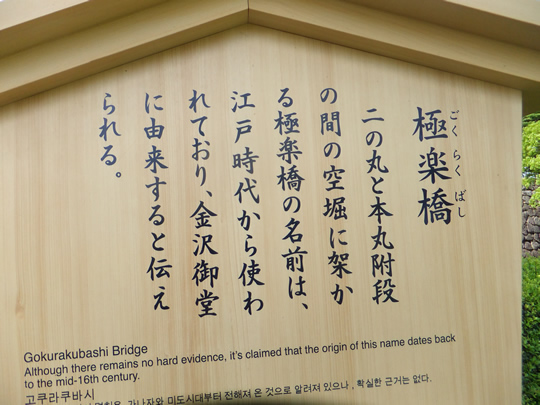 極楽橋
ごくらくばし
二の丸と本丸附段
の間の空堀に架か
る極楽橋の名前は、
江戸時代から使わ
れており、金沢御堂
に由来すると伝え
られる。
Gokurakubashi Bridge
Although there remains no hard evidence, it's claimed that the origin of this name dates back
to the mid-16th century.
고쿠라쿠바시
가나자와 미도시대부터 전해져 온 것으로 알려져 있으나, 확실한 근거는 없다.